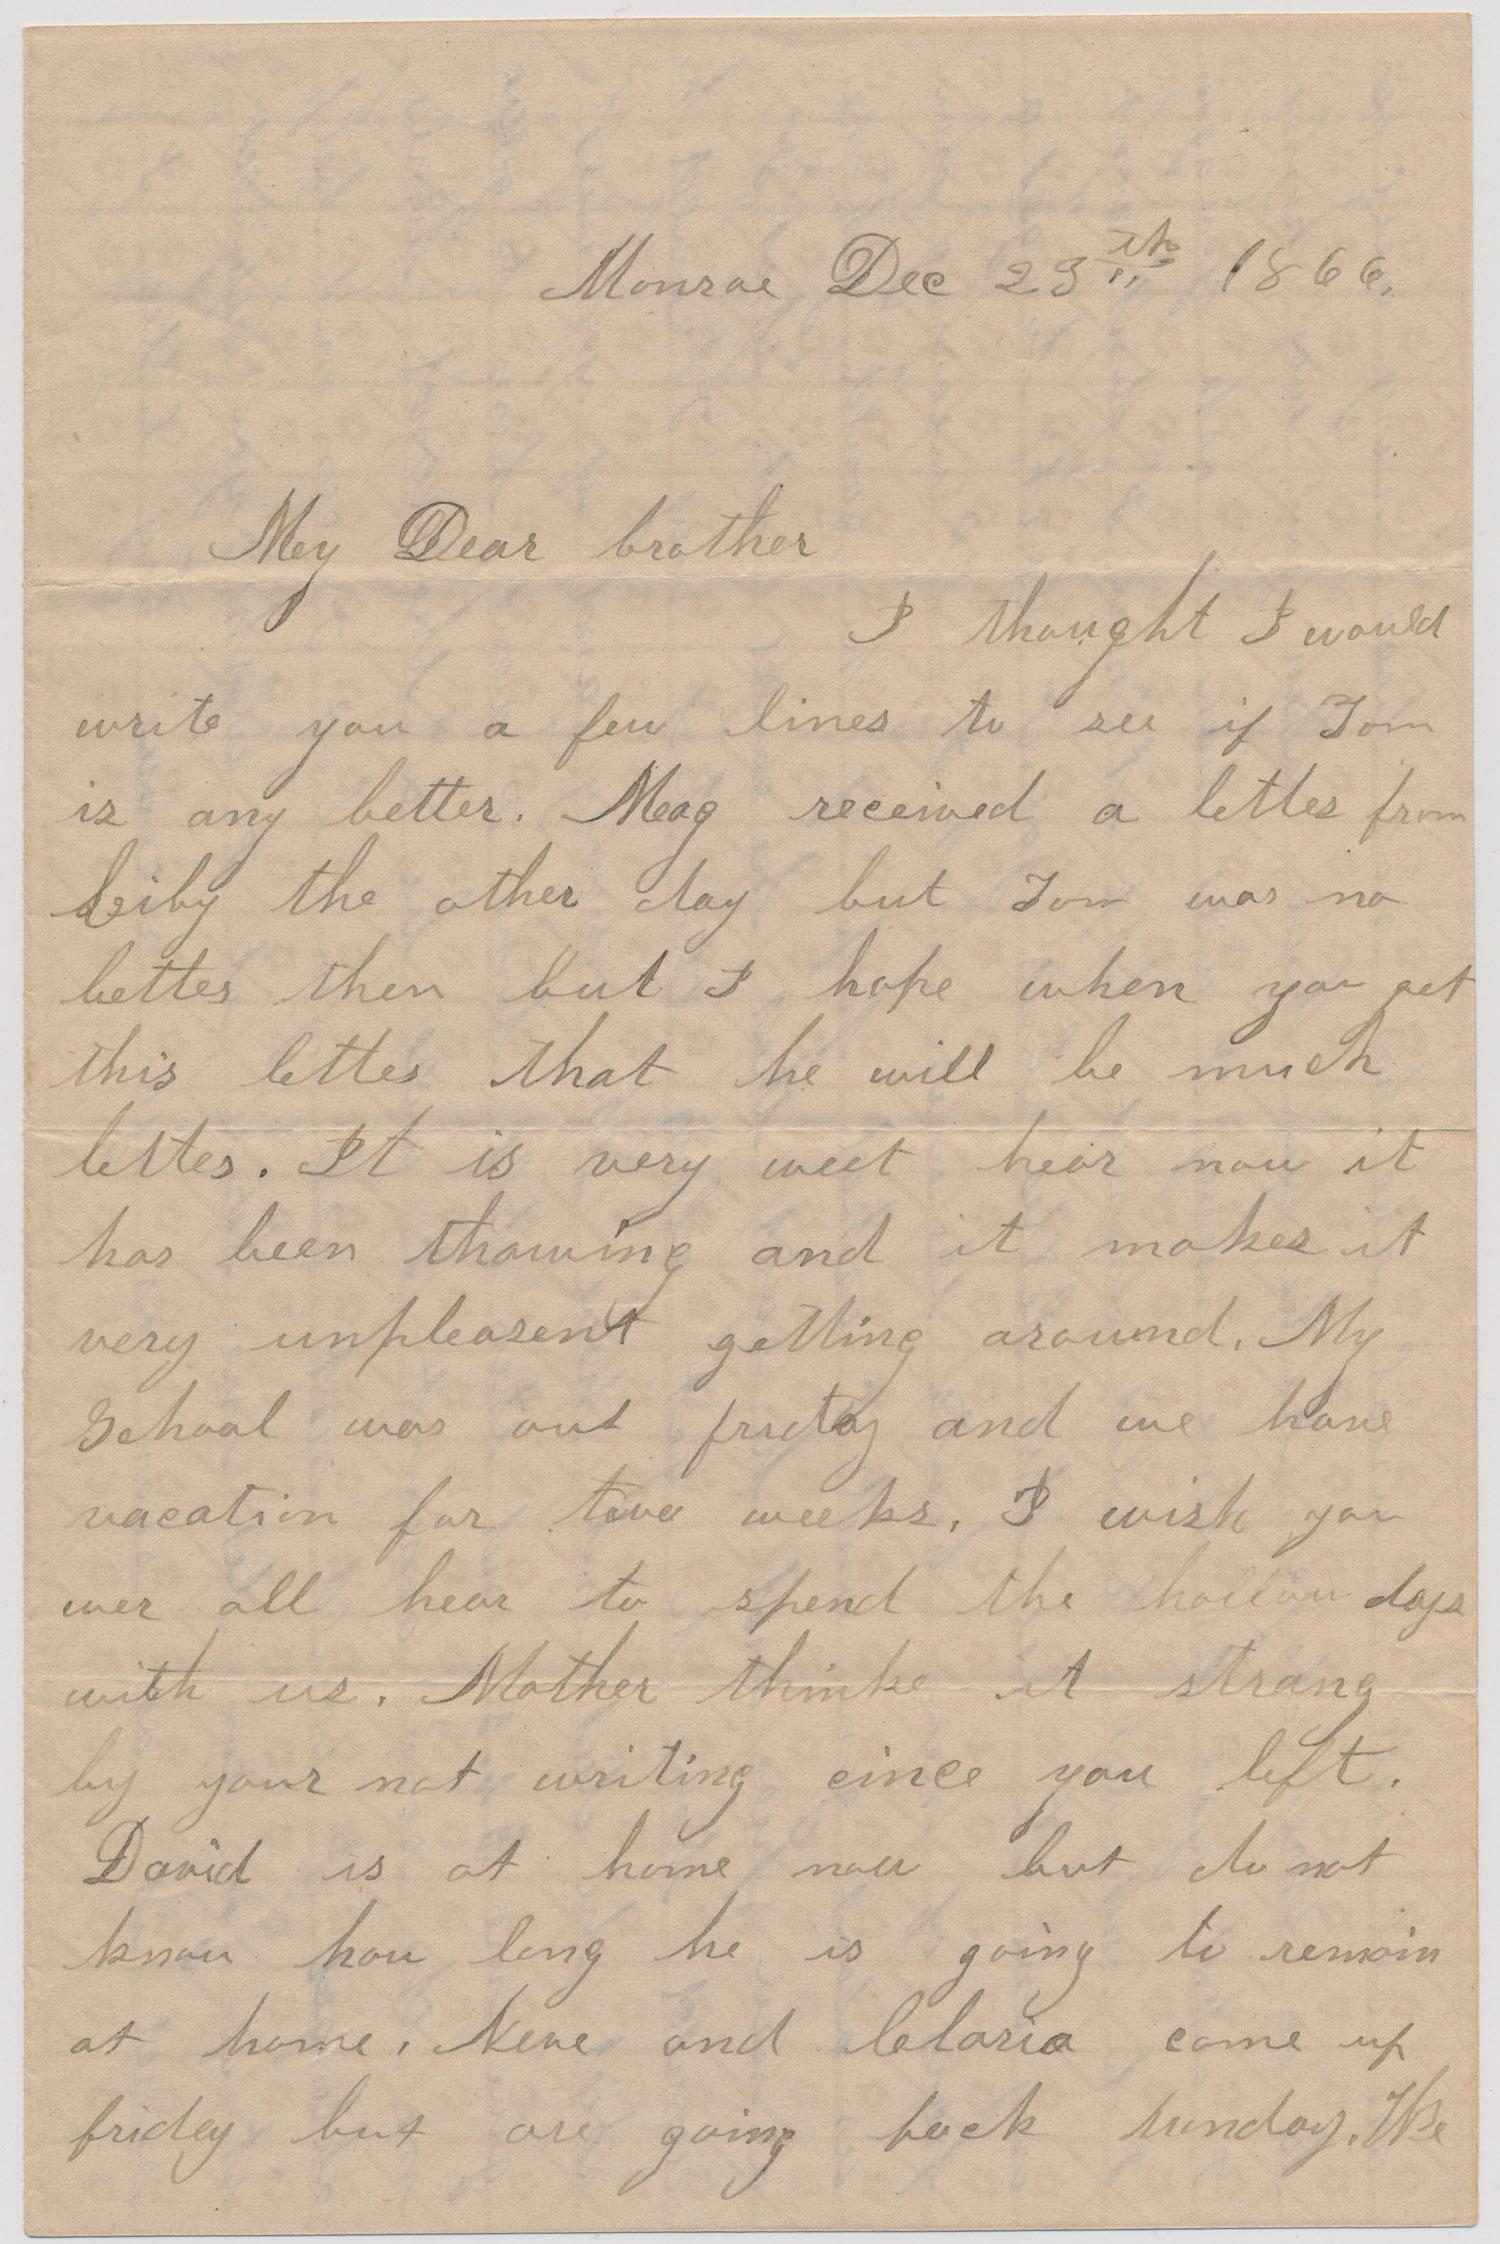 Monroe Dec 23th 1866.
My Dear brother
I thought I would
write you a few lines to see if Tom
is any better. Meag received a letter from
Leiby the other day but Tom was no
better then but I hope when you get
this letter that he will be much
better. It is very weet hear now it
has been thawing and it makes it
very unpleasent getting around. My
School was out friday and we have
vacation for two weeks. I wish you
wer all hear to spend the hollow days
with us. Mother thinke it strang
by your not writing cince you left.
David is at home now but do not
know how long he is going to remain
at home. Neve and Claria come up
friday but are going back sunday. We